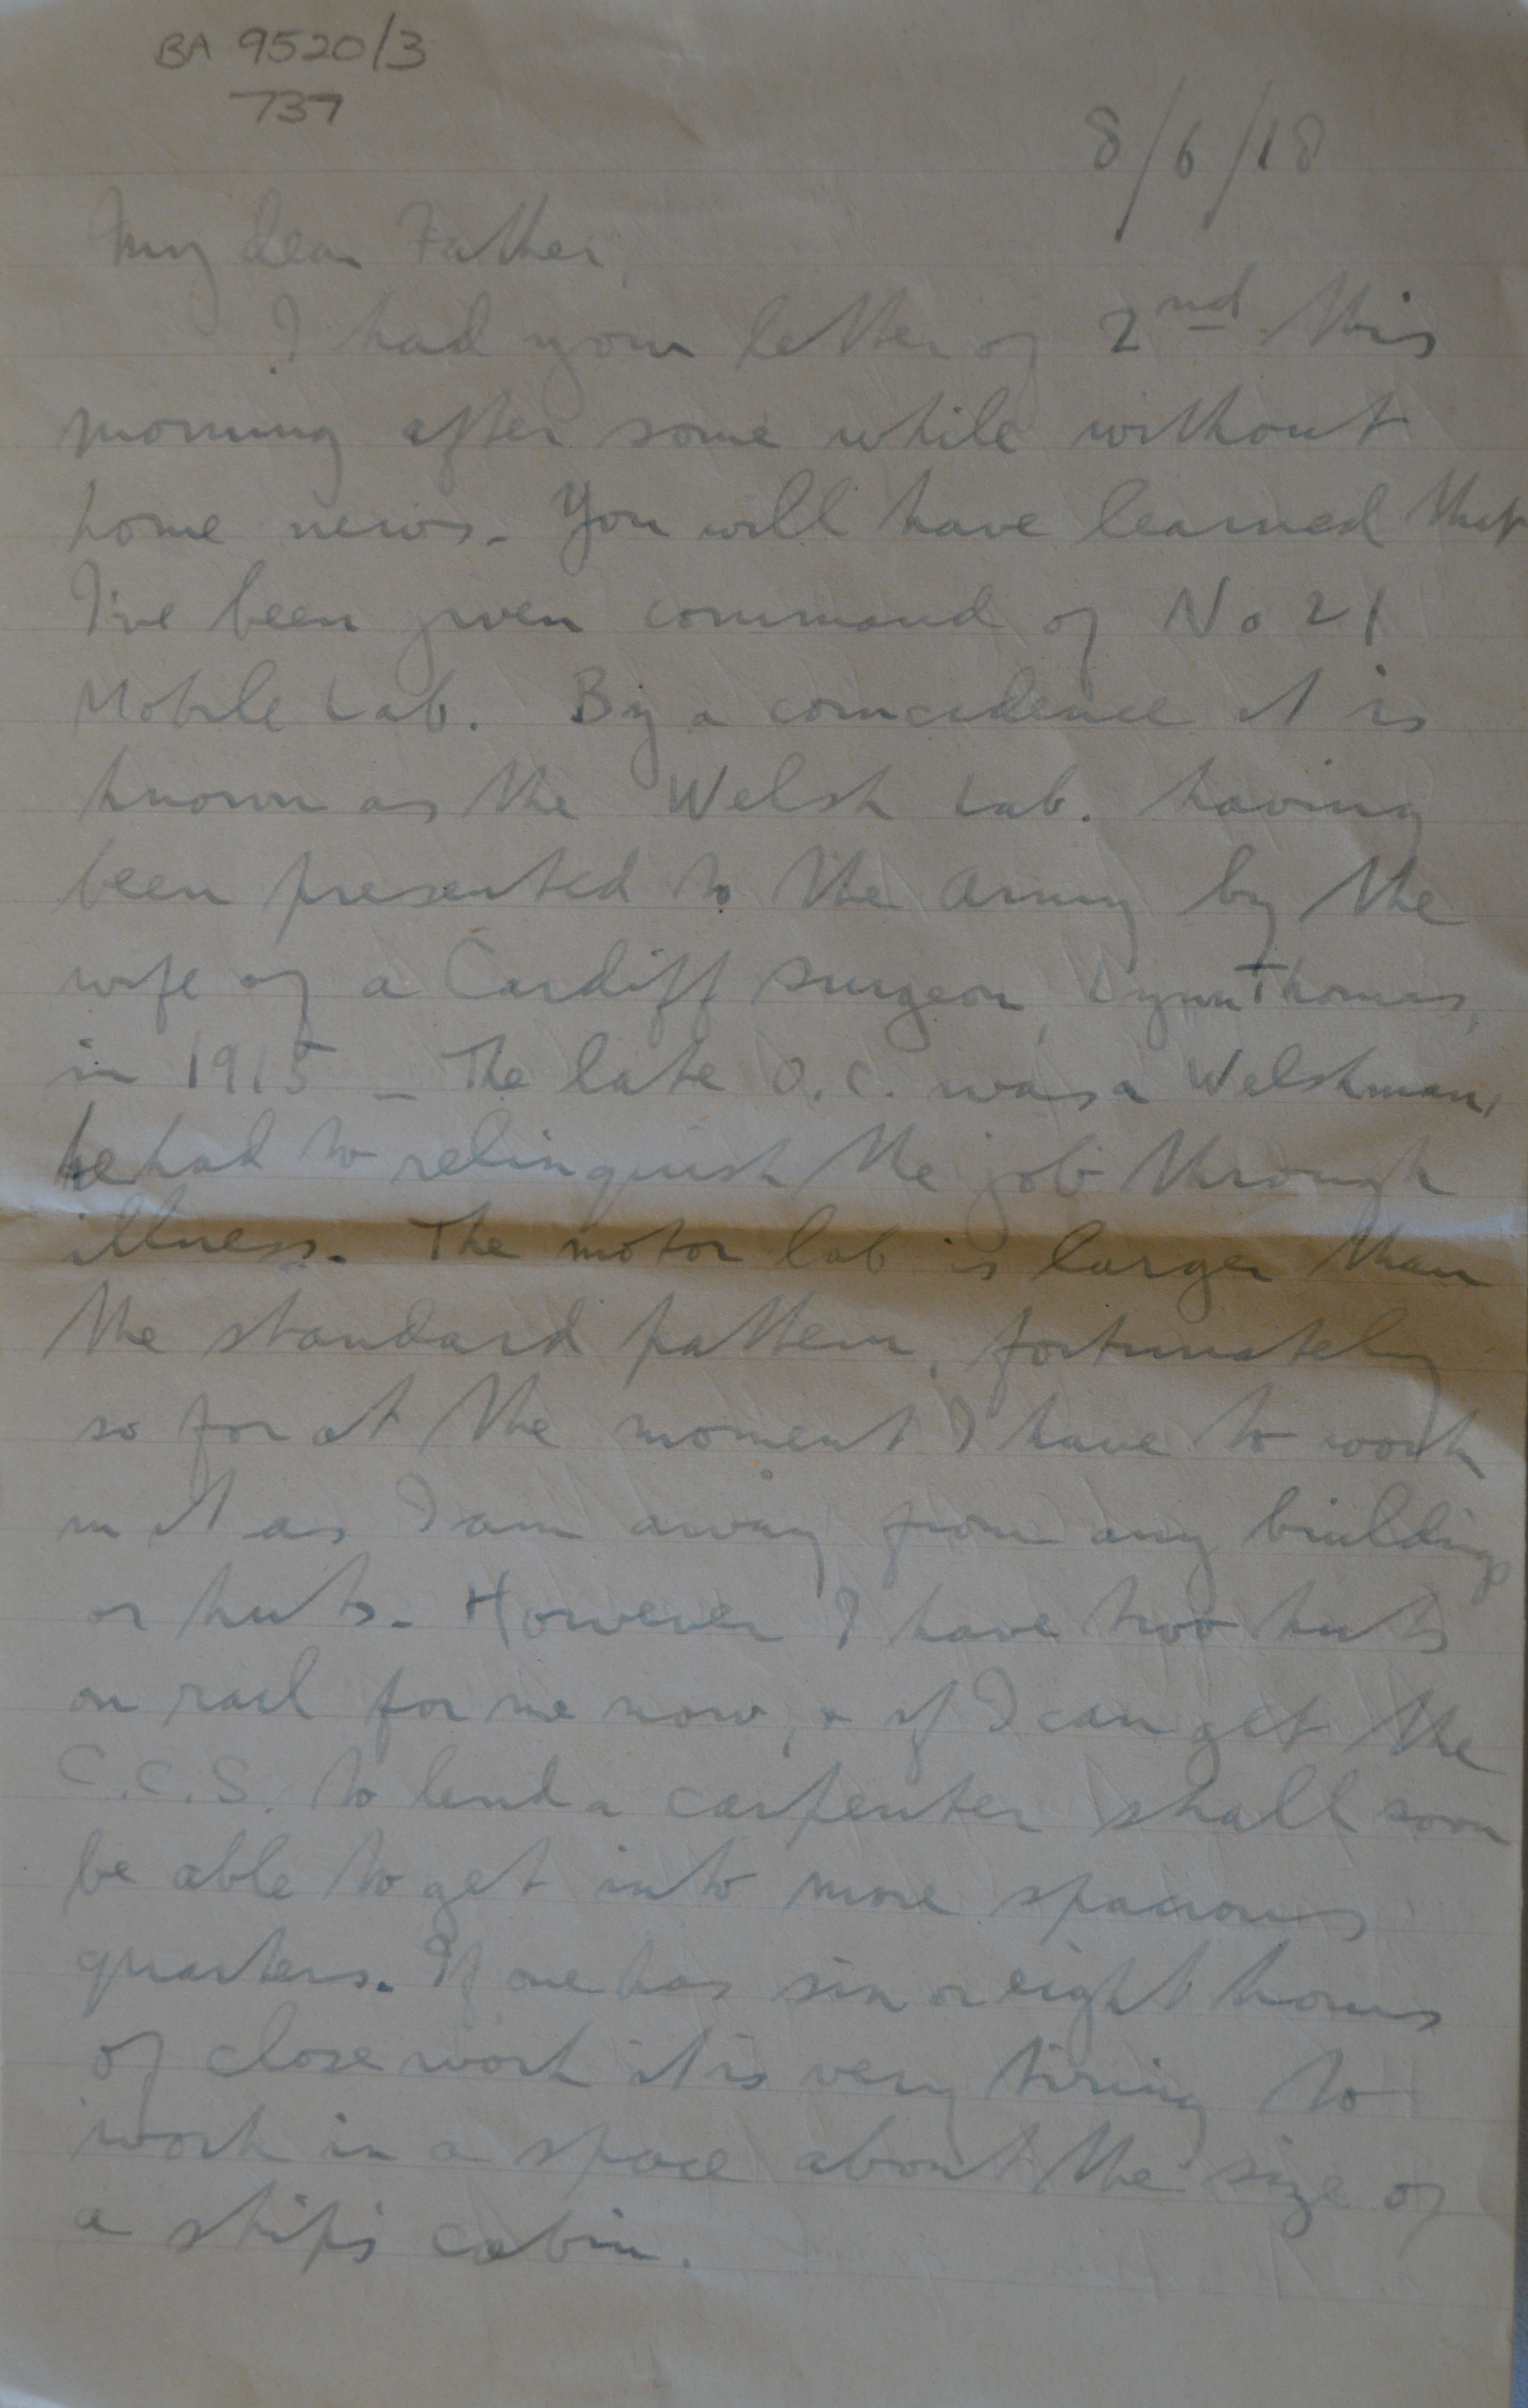 BA 9520/3
737
8/6/18
My dear Father,
I had your letter of 2nd this
morning after some while without
home news. You will have learned that
I've been given command of No 21
Mobile Lab. By a coincidence it is
known as the Welsh Lab. having
been presented to the Army by the
wife of a Cardiff surgeon, Lynn Thomas,
in 1915 - The late O.C. was a Welshman,
he had to relinquish the job through
illness. The motor lab is larger than
the standard pattern, fortunately
so for at the moment I have to work
in it as I am away from any buildings
or huts. However I have two huts
on rail for me now, & if I can get the
C.C.S. to lend a carpenter shall soon
be able to get into more spacious
quarters. If one has six or eight hours
of close work it is very tiring to
work in a space about the size of
a ship's cabin.